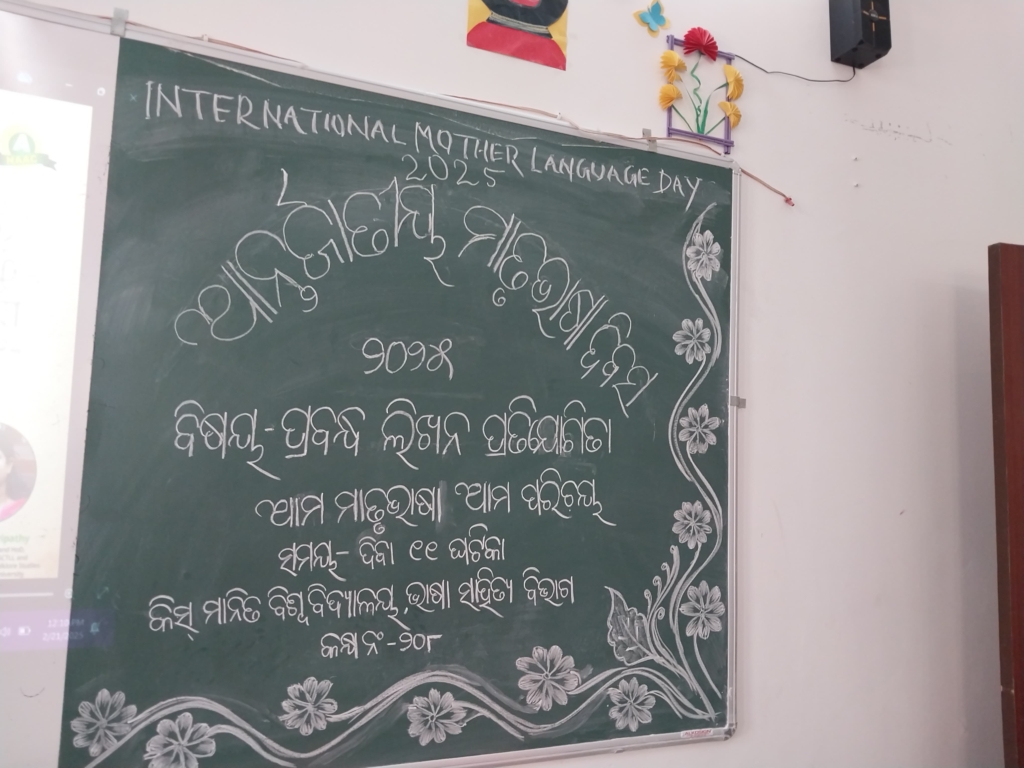 INTERNATIONAL MOTHER LANGUAGE DAY
2025
ଆନ୍ତର୍ଜାତୀୟ ମାତୃଭାଷା ଦିବସ
୨୦୨୫
ବିଷୟ - ପ୍ରବନ୍ଧ ଲିଖନ ପ୍ରତିଯୋଗିତା
ଆମ ମାତୃଭାଷା ଆମ ପରିଚୟ
ସମୟ - ଦିବା ୧୧ ଘଟିକା
କିସ୍ ମାନିତ ବିଶ୍ୱବିଦ୍ୟାଳୟ, ଭାଷା ସାହିତ୍ୟ ବିଭାଗ
କକ୍ଷ ନଂ - ୨୦୮
12:50 PM
2/21/2025